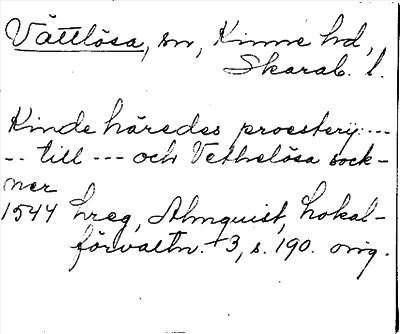 Vättlösa, sn, Kinne hd,
Skarab. l.
Kinde häredes proestery: ---
-- till --- och Vethelösa sock-
ner
1544 hreg, Almquist, Lokal-
förvaltn. +3, s. 190. orig.